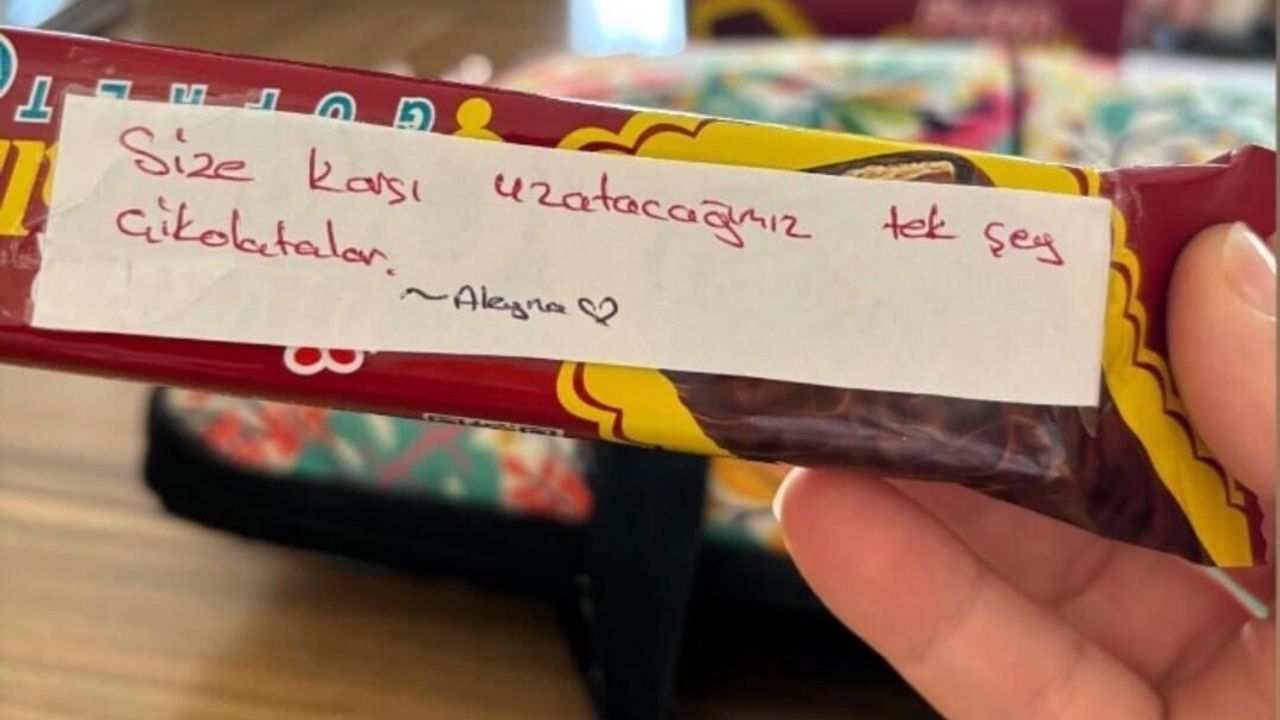 GOFRET
Size karşı uzatacağımız tek şey
çikolatalar.
~Aleyna ♡